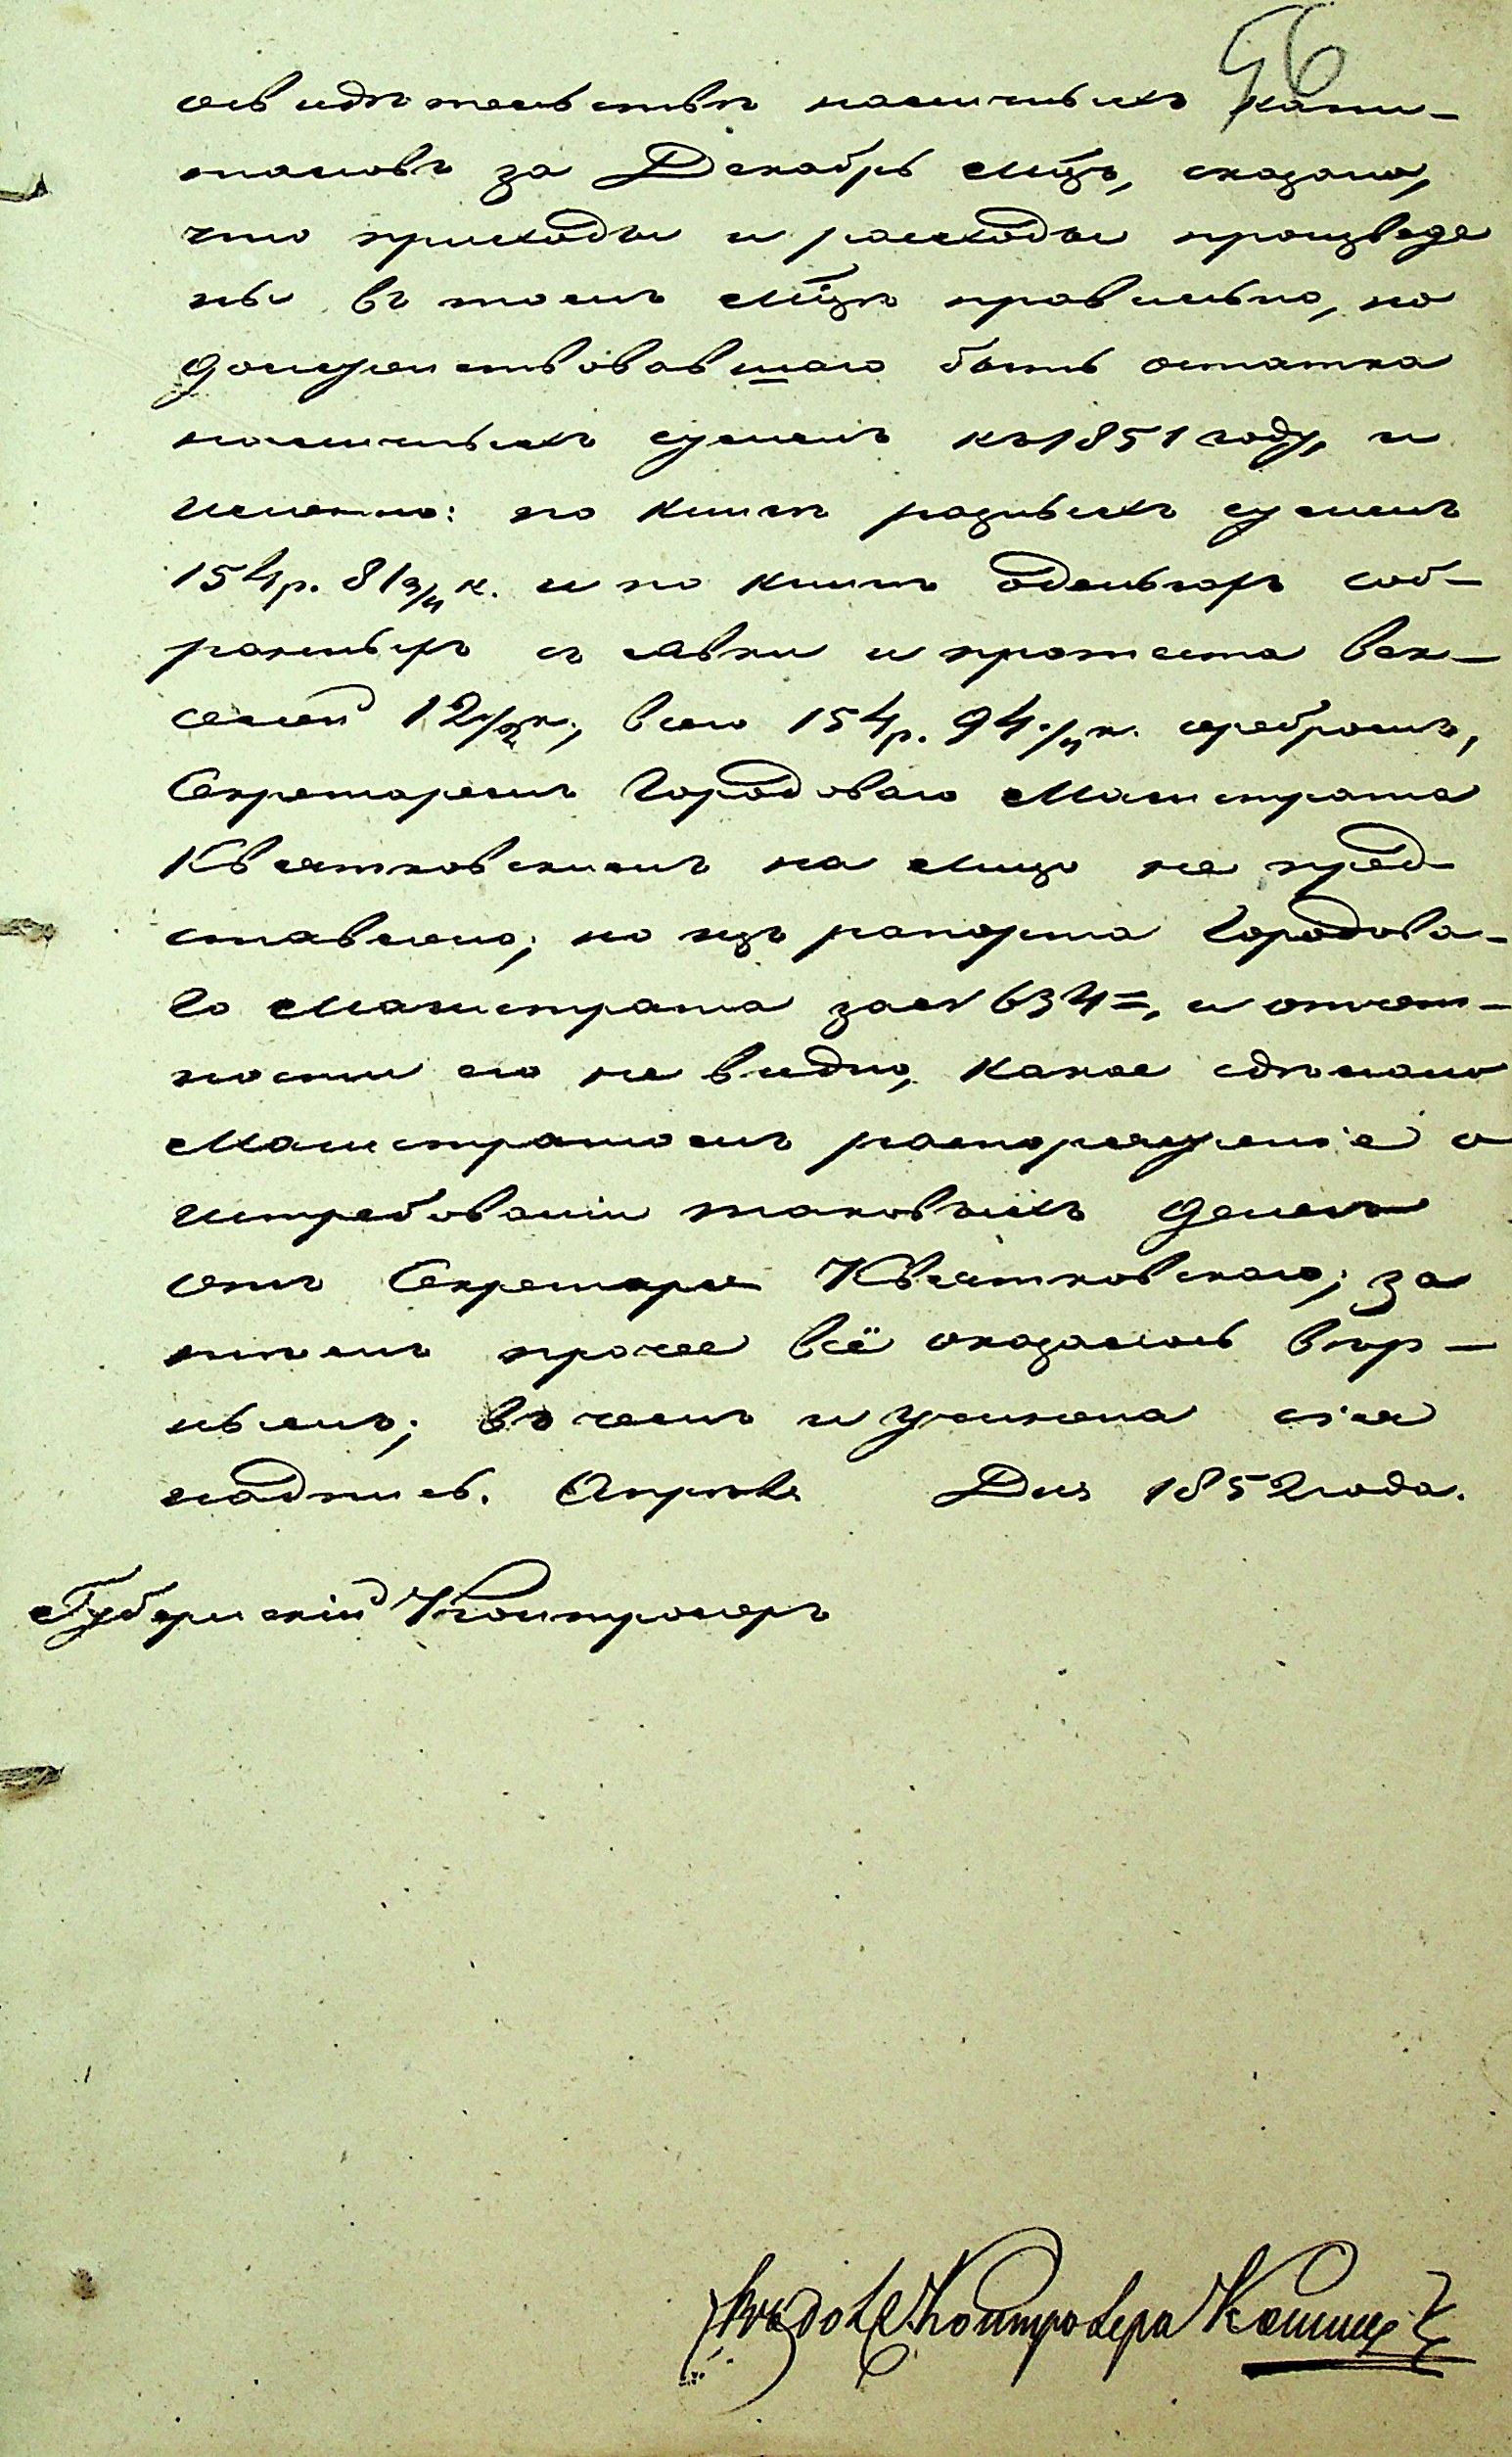 56
свидѣтельствѣ наличныхъ капи-
таловъ за Декабрь мцъ, сказано,
что приходы и расходы произведе
ны въ томъ мцѣ правильно, но
долженствовавшаго быть остатка
наличныхъ суммъ къ 1851 году, и
именно: по книгѣ разныхъ суммъ
154 р. 81 3/4 к. и по книгѣ деньгамъ соб-
раннымъ съ явки и протеста век-
селей 12 1/2 к., всего 154 р. 94 1/4 к. серебромъ,
Секретаремъ Городоваго Магистрата
Квятковскимъ на лицо не пред-
ставлено; но изъ рапорта Городова-
го Магистрата за № 634 =, и отчет-
ности его не видно, какое сдѣлано
Магистратомъ распоряженіе о
истребованіи таковыхъ денегъ
отъ Секретаря Квятковскаго; за
тѣмъ прочее всё оказалось вѣр-
нымъ; въ чемъ и учинена сія
надпись. Апрѣля Дня 1852 года.
Губернскій Контролеръ
Контролера